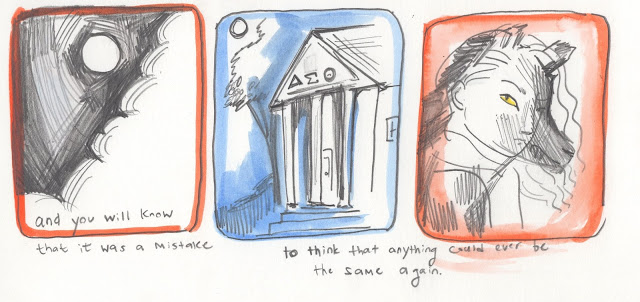 and you will know
that it was a mistake
ΔΣΘ
to think that anything could ever be
the same again.